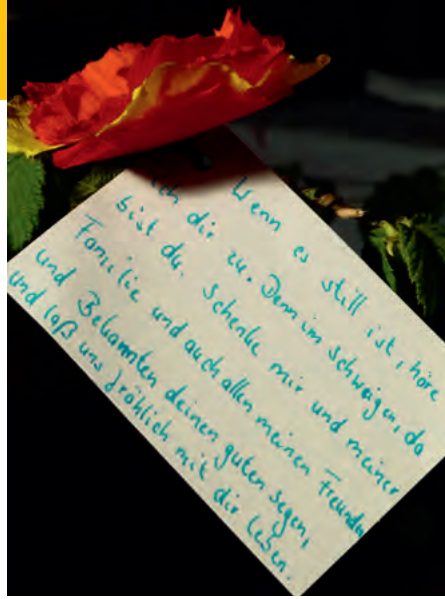 Wenn es still ist, höre
ich dir zu. Denn im schweigen, da
bist du. Schenke mir und meiner
Familie und auch allen meinen Freunden
und Bekannten deinen guten segen,
und laß uns fröhlich mit dir leben.